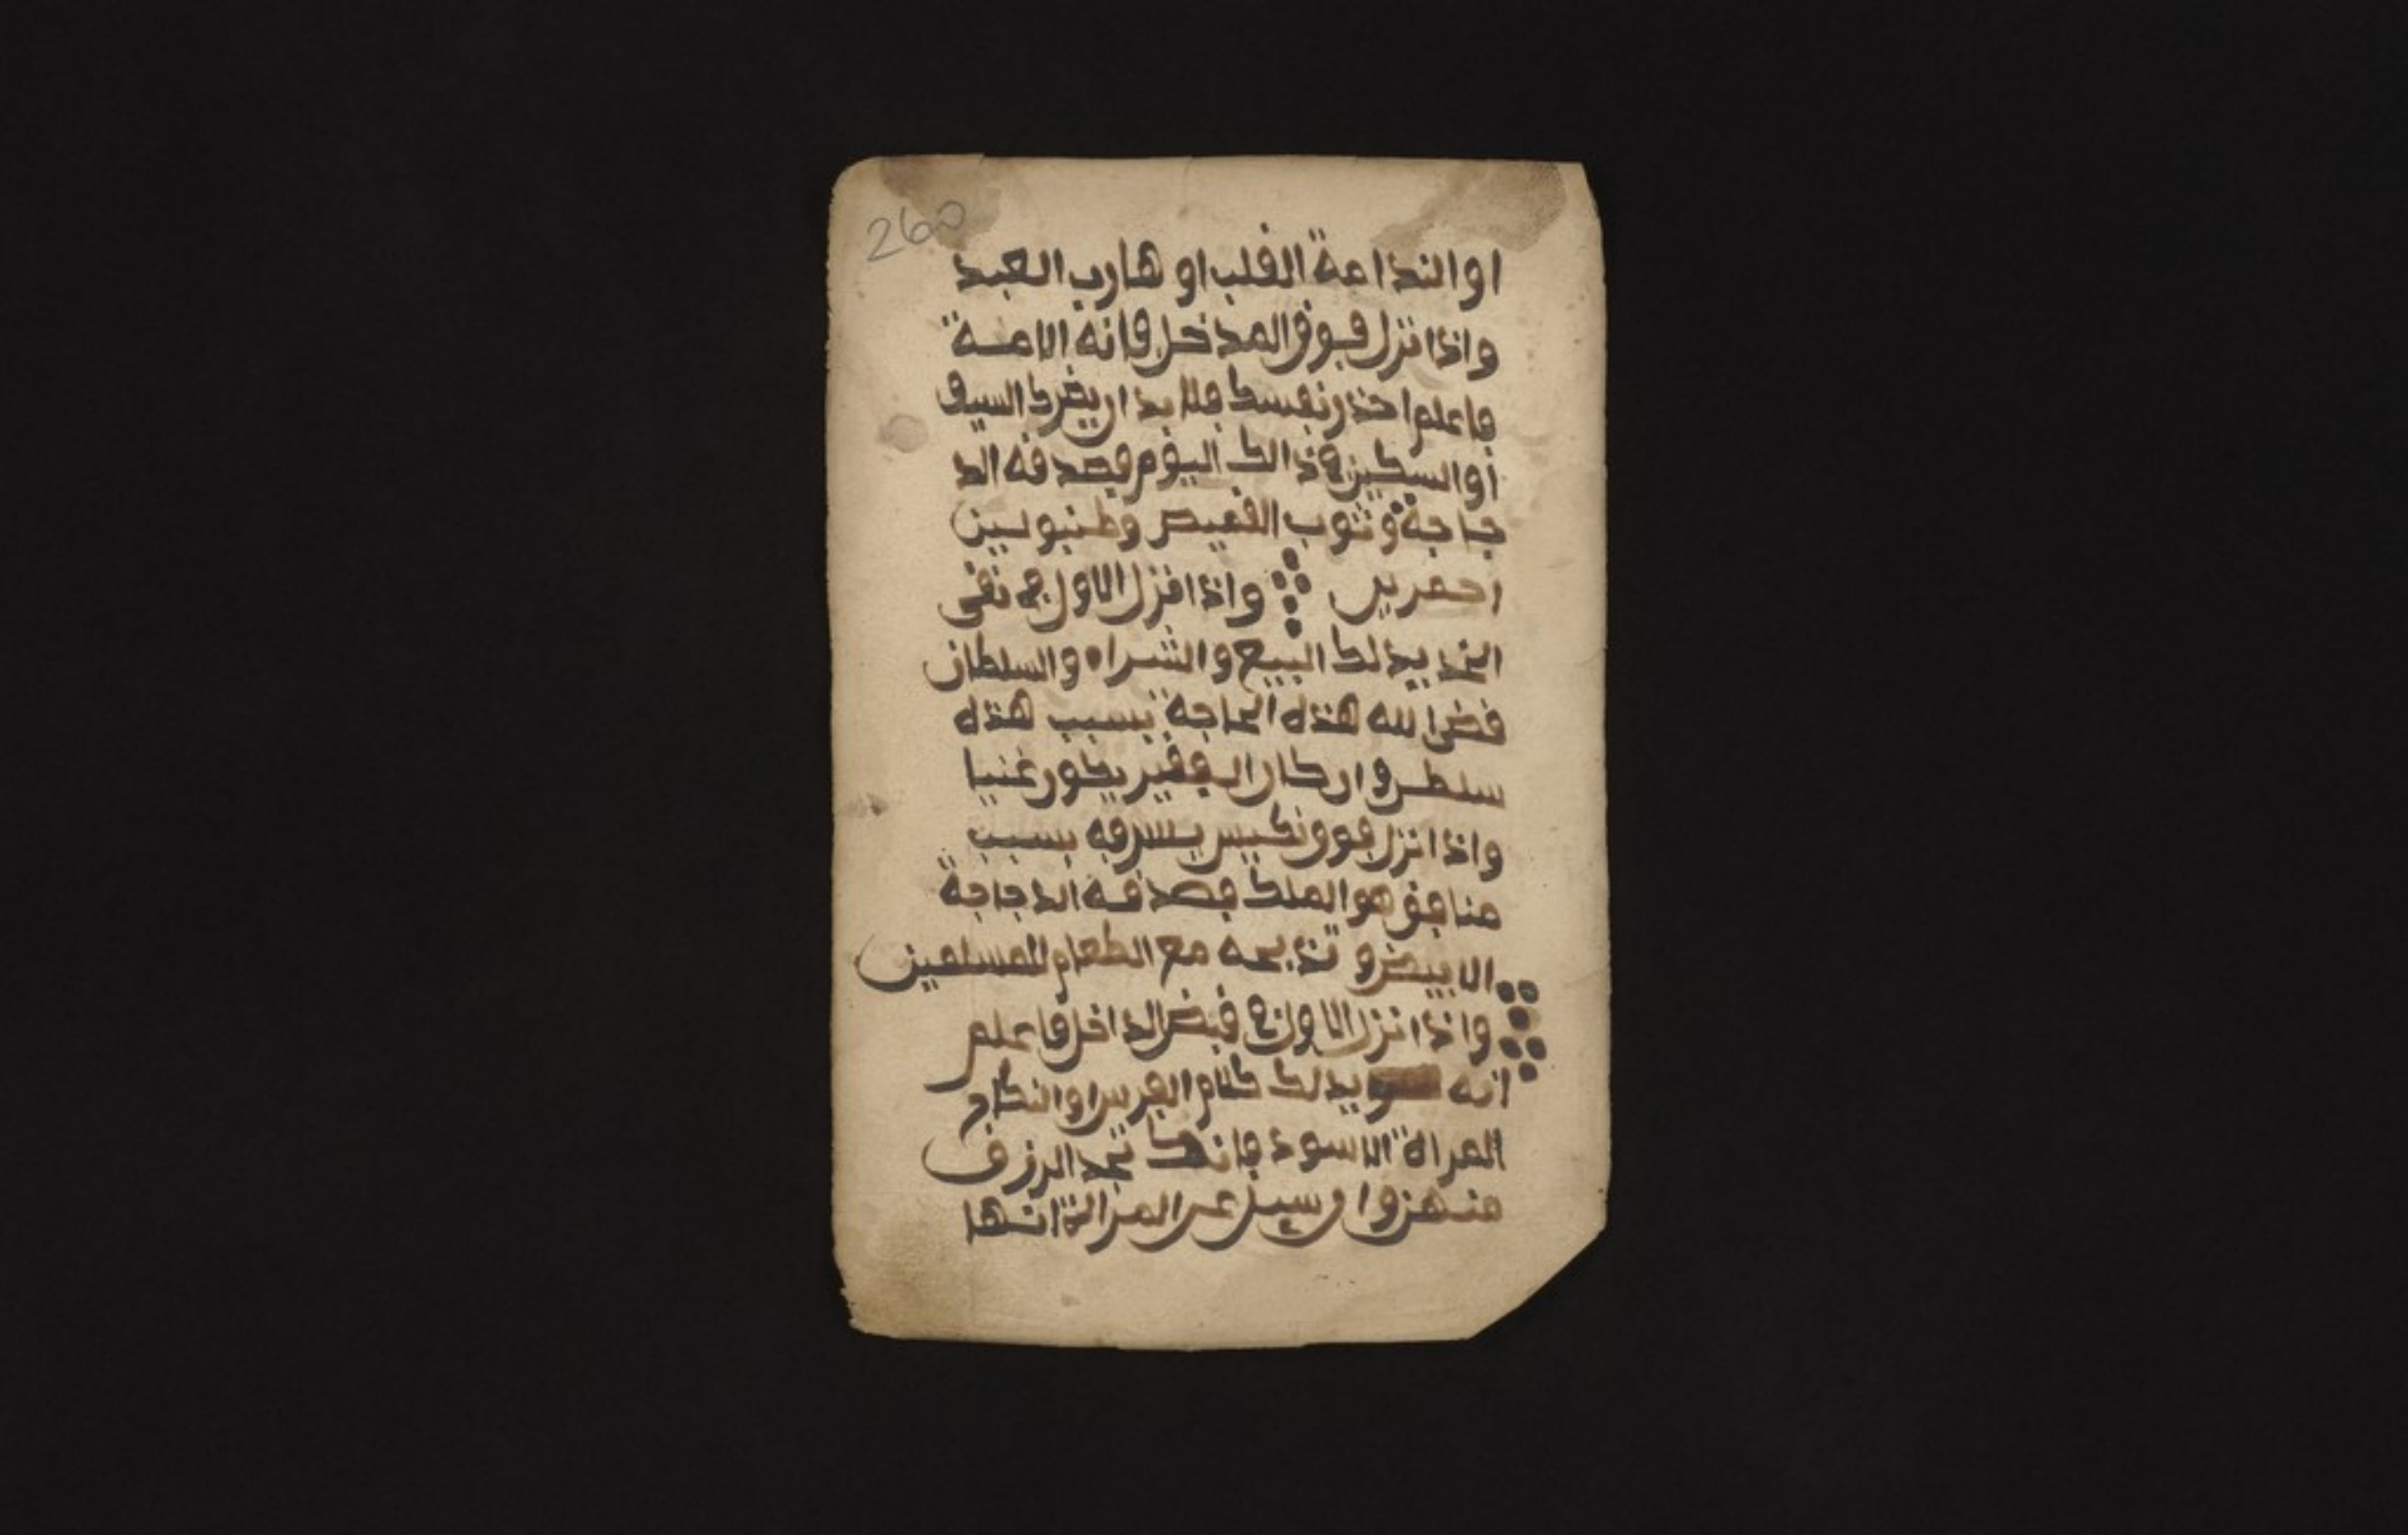 260
او الندامة القلب او هارب العبد
واذا نزل فوق المدخل فانه الامة
فاعلم احذر نفسك فلا بد ان يضرك السيف
أو السكين في ذالك اليوم فصدقه الد
جاجة وثوب القميص وطنبولين
احمرين واذا انزل الاول في نقى
الخد يدلك البيع والشراء والسلطان
قضى الله هذه الحاجة بسبب هذه
سلطن وان كان الفقير يكون غنيا
واذا نزل فوق نكيس يسرقه بسبب
منافق هو الملك فصدقه الدجاجة
الابيض وتذبحه مع الطعام للمسلمين
واذا نزل الاول في قبض الداخل فاعلم
انه يدلك كلام الفرس او النكاح
المراة الاسود فانك تجد الرزق
منهن وان سيل عن المراة انها